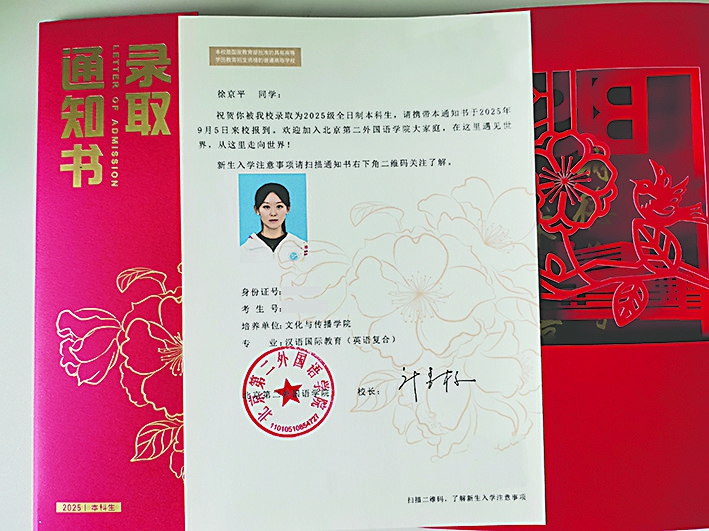 录取
通知书
LETTER OF ADMISSION
2025 | 本科生
本校是国家教育部批准的具有高等
学历教育招生资格的普通高等学校
徐京平 同学：
祝贺你被我校录取为2025级全日制本科生，请携带本通知书于2025年
9月5日来校报到。欢迎加入北京第二外国语学院大家庭，在这里遇见世
界，从这里走向世界！
新生入学注意事项请扫描通知书右下角二维码关注了解。
身份证号：
考 生 号：
培养单位：文化与传播学院
专 业：汉语国际教育（英语复合）
北京第二外国语学院 校长：
北京第二外国语学院
11010510854727
扫描二维码，了解新生入学注意事项